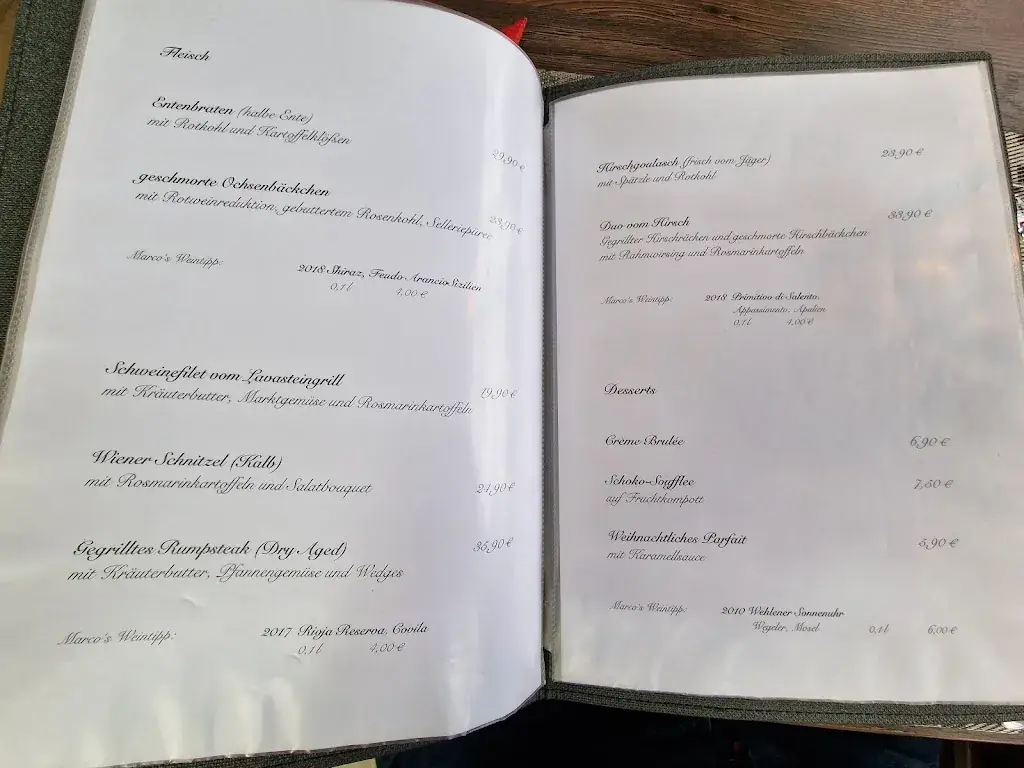 Fleisch
Entenbraten (halbe Ente)
mit Rotkohl und Kartoffelklößen
29,90 €
geschmorte Ochsenbäckchen
mit Rotweinreduktion, gebuttertem Rosenkohl, Selleriepüree
23,90 €
Marco's Weintipp:
2018 Shiraz, Feudo Arancio Sizilien
0,1 l 4,00 €
Schweinefilet vom Lavasteingrill
mit Kräuterbutter, Marktgemüse und Rosmarinkartoffeln
19,90 €
Wiener Schnitzel (Kalb)
mit Rosmarinkartoffeln und Salatbouquet
24,90 €
Gegrilltes Rumpsteak (Dry Aged)
mit Kräuterbutter, Pfannengemüse und Wedges
35,90 €
Marco's Weintipp:
2017 Rioja Reserva, Covila
0,1 l 4,00 €
Hirschgoulasch (frisch vom Jäger)
mit Spätzle und Rotkohl
23,90 €
Duo vom Hirsch
Gegrillter Hirschrücken und geschmorte Hirschbäckchen
mit Rahmwirsing und Rosmarinkartoffeln
33,90 €
Marco's Weintipp: 2018 Primitivo di Salento,
Appassimento, Apulien
0,1 l 4,00 €
Desserts
Crème Brulée 6,90 €
Schoko-Soufflee
auf Fruchtkompott
7,50 €
Weihnachtliches Parfait
mit Karamellsauce
5,90 €
Marco's Weintipp: 2010 Wehlener Sonnenuhr
Wegeler, Mosel 0,1 l 6,00 €